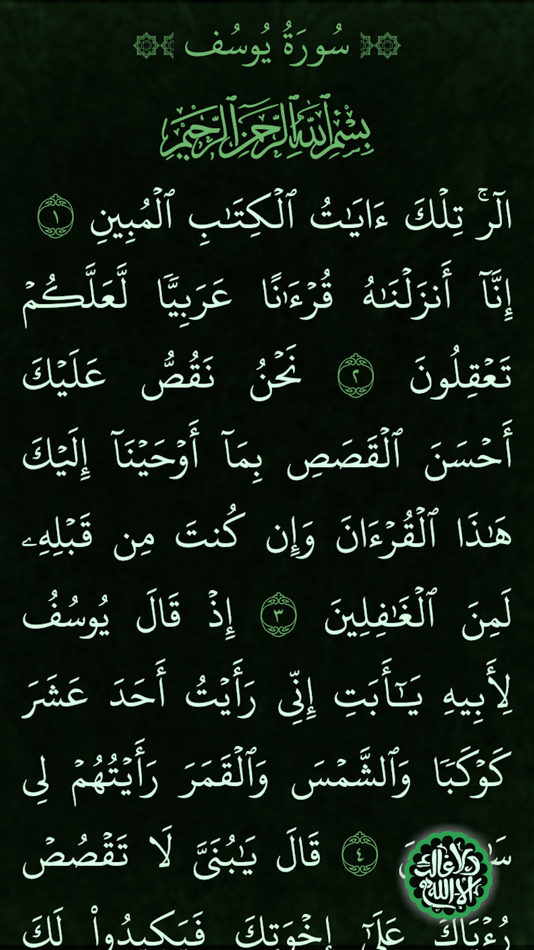 سُورَةُ يُوسُف
بِسْمِ ٱللَّهِ ٱلرَّحْمَٰنِ ٱلرَّحِيمِ
الٓرۚ تِلْكَ ءَايَٰتُ ٱلْكِتَٰبِ ٱلْمُبِينِ ١
إِنَّآ أَنزَلْنَٰهُ قُرْءَٰنًا عَرَبِيًّا لَّعَلَّكُمْ
تَعْقِلُونَ ٢ نَحْنُ نَقُصُّ عَلَيْكَ
أَحْسَنَ ٱلْقَصَصِ بِمَآ أَوْحَيْنَآ إِلَيْكَ
هَٰذَا ٱلْقُرْءَانَ وَإِن كُنتَ مِن قَبْلِهِۦ
لَمِنَ ٱلْغَٰفِلِينَ ٣ إِذْ قَالَ يُوسُفُ
لِأَبِيهِ يَٰٓأَبَتِ إِنِّى رَأَيْتُ أَحَدَ عَشَرَ
كَوْكَبًا وَٱلشَّمْسَ وَٱلْقَمَرَ رَأَيْتُهُمْ لِى
٤ قَالَ يَٰبُنَىَّ لَا تَقْصُصْ
رُءْيَاكَ عَلَىٰٓ إِخْوَتِكَ فَيَكِيدُوا۟ لَكَ